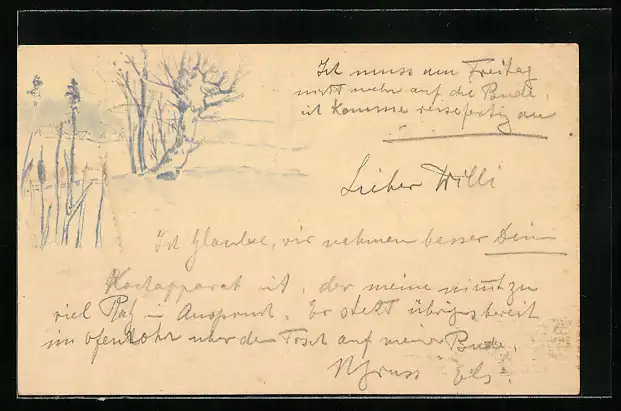 Ich muss am Freitag
nicht mehr auf die Bude,
ich komme reisefertig an
Lieber Willi
Ich glaube, wir nehmen besser Dein
Kochapparat mit, der meine nimmt zu
viel Platz in Anspruch. Er steht übrigens bereit
im Ofenrohr über dem Tisch auf meiner Bude.
Gruss Els.